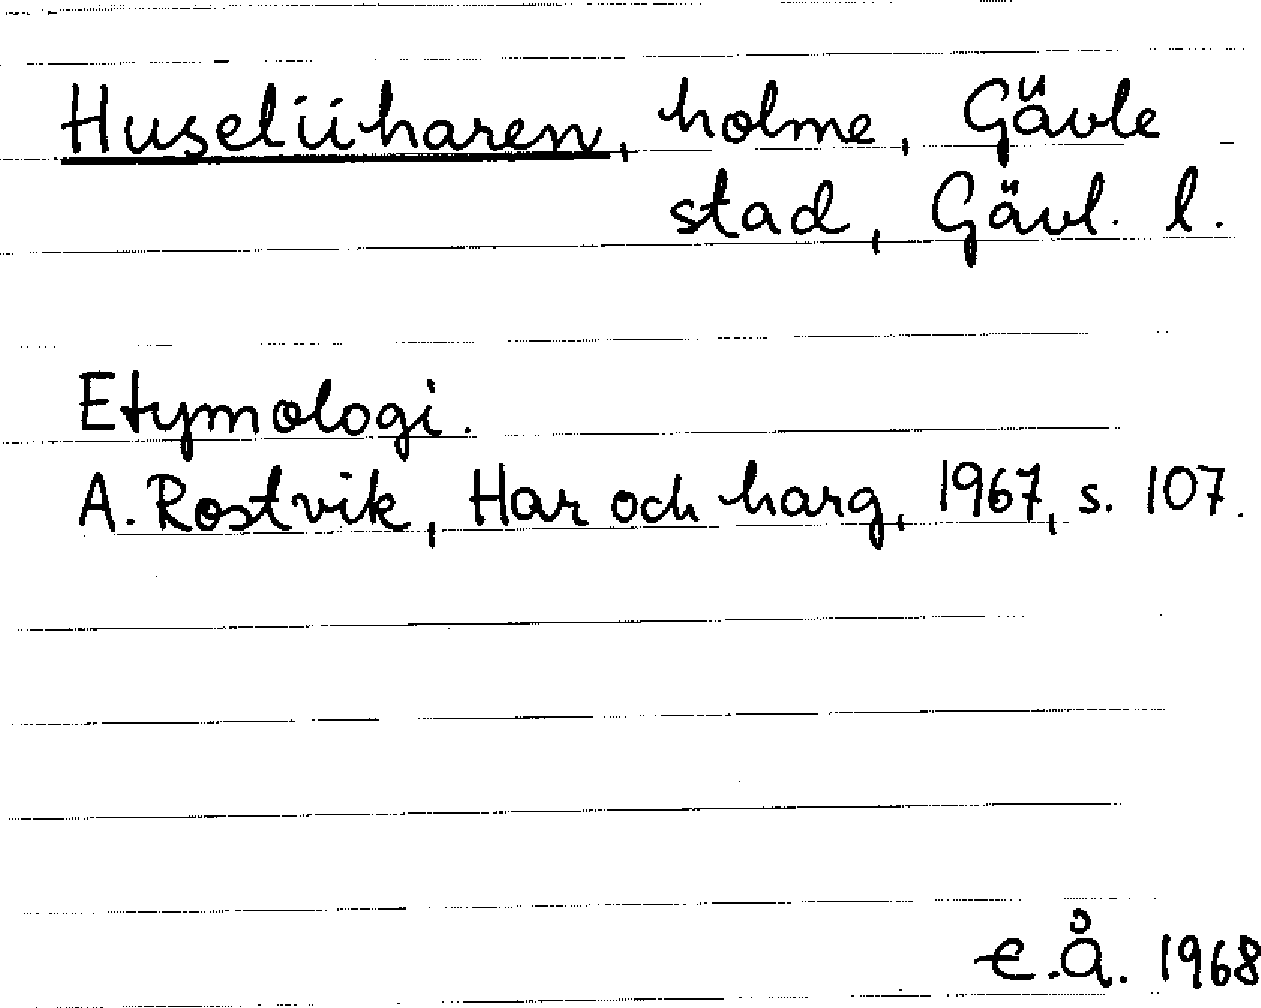 Huseliiharen, holme, Gävle
stad, Gävl. l.
Etymologi.
A. Rostvik, Har och harg, 1967, s. 107.
E.Å. 1968